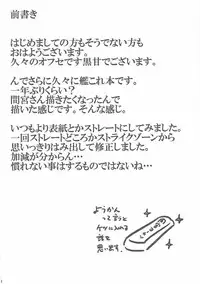 前書き
はじめましての方もそうでない方も
おはようございます。
久々のオフセです黒甘でございます。
んでさらに久々に艦これ本です。
一年ぶりくらい？
間宮さん描きたくなったんで
描いた感じです。そんな感じ。
いつもより表紙とかストレートにしてみました。
一回ストレートどころかストライクゾーンから
思いっきりはみ出して修正しました。
加減が分からん…
慣れない事はするものではないね…
ようかん
って言うと
ケツに入れる
思います。